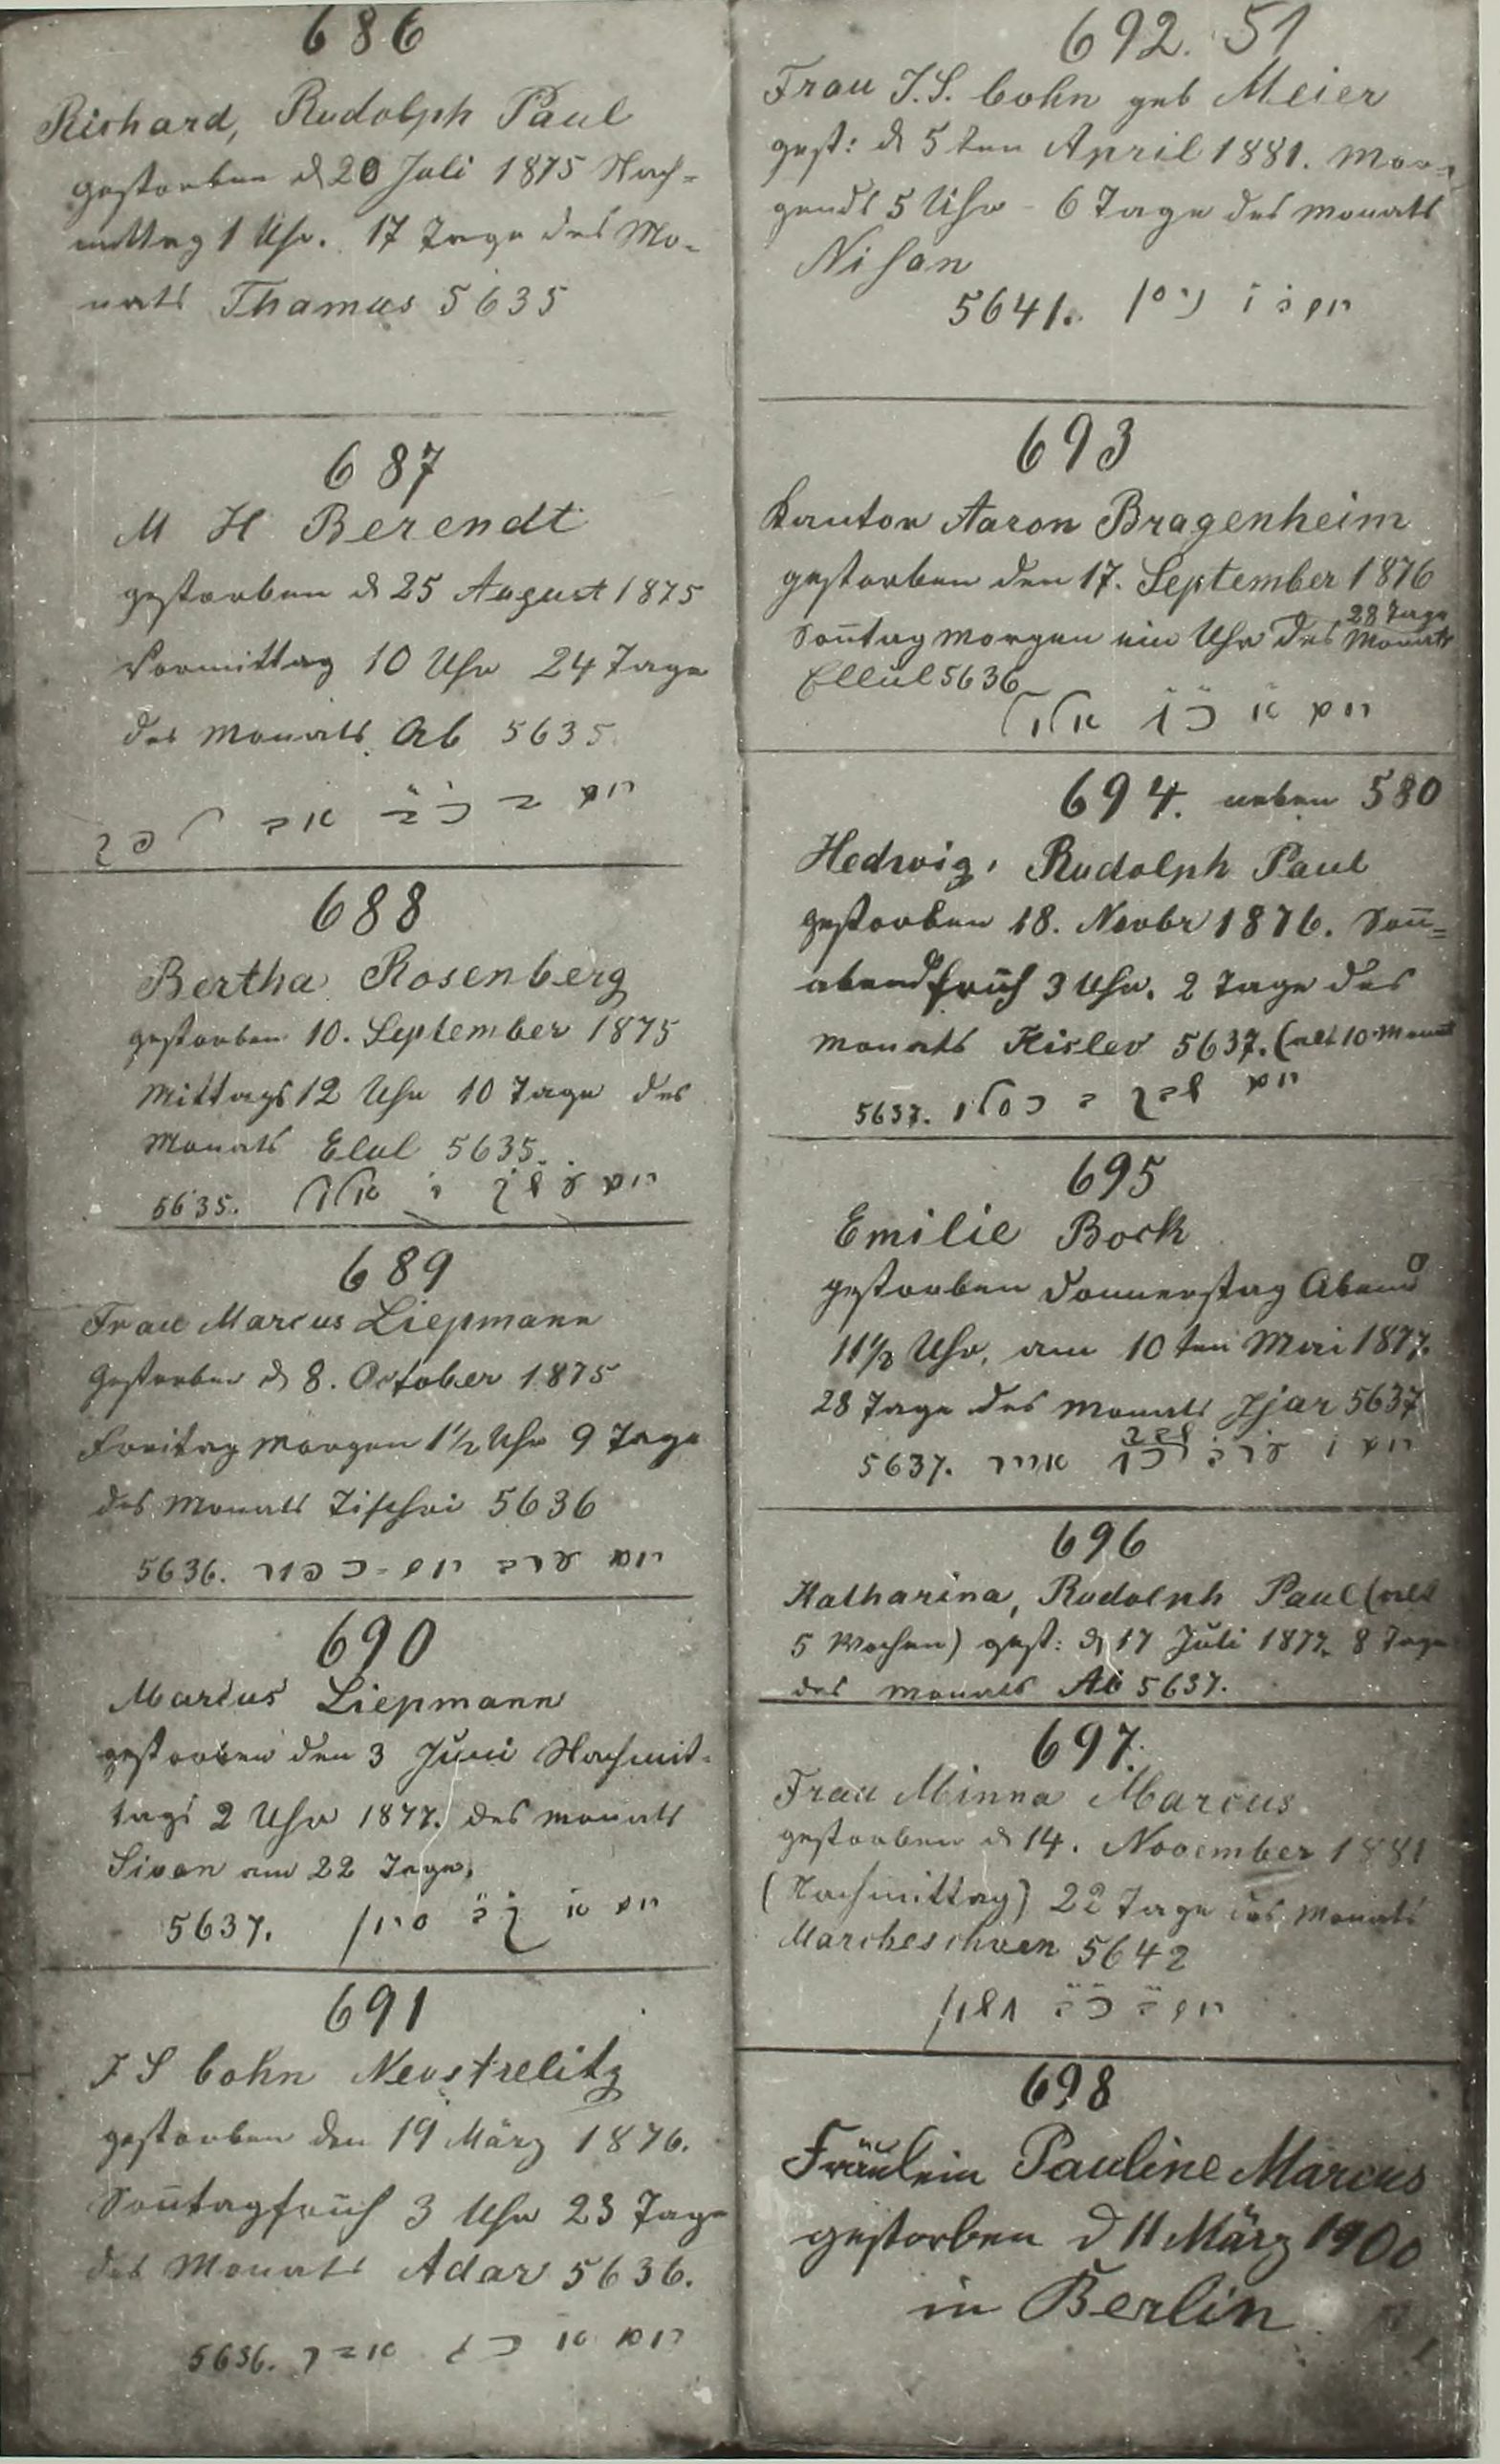 686
Richard, Rudolph Paul
gestorben d 20 Juli 1875 Nach-
mittag 1 Uhr. 17 Tage des Mo-
nats Thamus 5635
687
M H Berendt
gestorben d 25 August 1875
Vormittag 10 Uhr 24 Tage
des Monats Ab 5635
יום ב כ״ד אב
688
Bertha Rosenberg
gestorben 10. September 1875
Mittags 12 Uhr 10 Tage des
Monats Elul 5635.
יום ע ש״ק י אלול 5635.
689
Frau Marcus Liepmann
Gestorben d 8. October 1875
Freitag Morgen 1½ Uhr 9 Tage
des Monats Tischri 5636
יום ערב יום-כפור 5636.
690
Marcus Liepmann
gestorben den 3 Juni Nachmit-
tags 2 Uhr 1877. des Monats
Sivan am 22 Tage.
יום א סיון 5637.
691
J S Cohn Neustrelitz
gestorben den 19 März 1876.
Sontag früh 3 Uhr 23 Tage
des Monats Adar 5636.
יום א כג אדר 5636.
692. 51
Frau J. S. Cohn geb Meier
gest: d 5ten April 1881. Mor-
gends 5 Uhr - 6 Tage des Monats
Nisan
יום ג ו ניסן 5641.
693
Kantor Aaron Bragenheim
gestorben den 17. September 1876
28 Tage
Sontag Morgen ein Uhr des Monats
Ellul 5636
יום א כ״ח אלול
694. neben 580
Hedwig, Rudolph Paul
gestorben 18. Novbr 1876. Son-
abend früh 3 Uhr. 2 Tage des
Monats Kislev 5637. (alt 10 Monat
יום שבק ב כסלו 5637.
695
Emilie Bock
gestorben Donnerstag Abend
11½ Uhr, am 10ten Mai 1877.
28 Tage des Monats Jjar 5637
יום ו ערב כח אייר 5637.
696
Katharina, Rudolph Paul (alt
5 Wochen) gest: d 17 Juli 1877. 8 Tage
des Monats Ab 5637.
697.
Frau Minna Marcus
gestorben d 14. November 1881
(Nachmittag) 22 Tage des Monats
Marcheschwen 5642
יום ב כ״ב חשון
698
Fräulein Pauline Marcus
gestorben d 11 März 1900
in Berlin